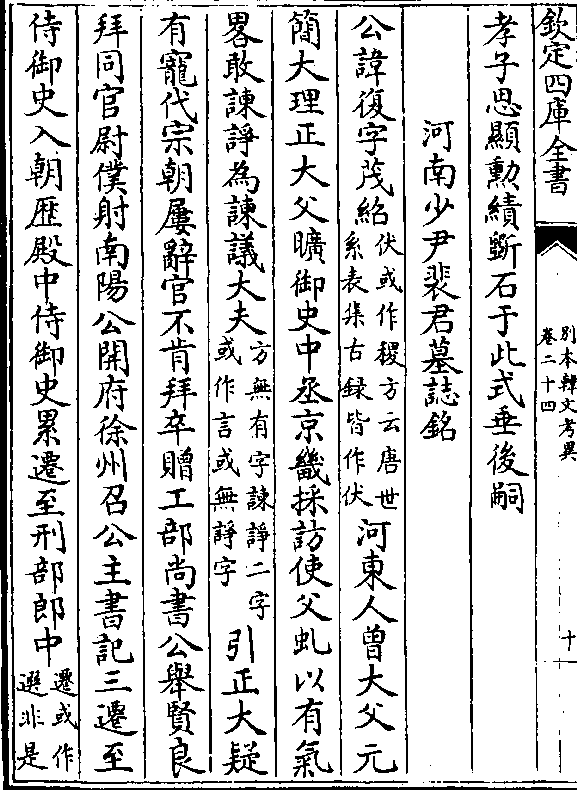 欽定四庫全書
別本韓文考異
卷二十四
十一
孝子思顯勳績斲石于此式垂後嗣
河南少尹裴君墓誌銘
公諱復字茂紹
伏或作稷方云唐世
系表集古録皆作伏
河東人曾大父元
簡大理正大父曠御史中丞京畿採訪使父虬以有氣
畧敢諫諍為諫議大夫
方無有字諫諍二字
或作言或無諍字
引正大疑
有寵代宗朝屢辭官不肯拜卒贈工部尚書公舉賢良
拜同官尉僕射南陽公開府徐州召公主書記三遷至
侍御史入朝歴殿中侍御史累遷至刑部郎中
遷或作
選非是